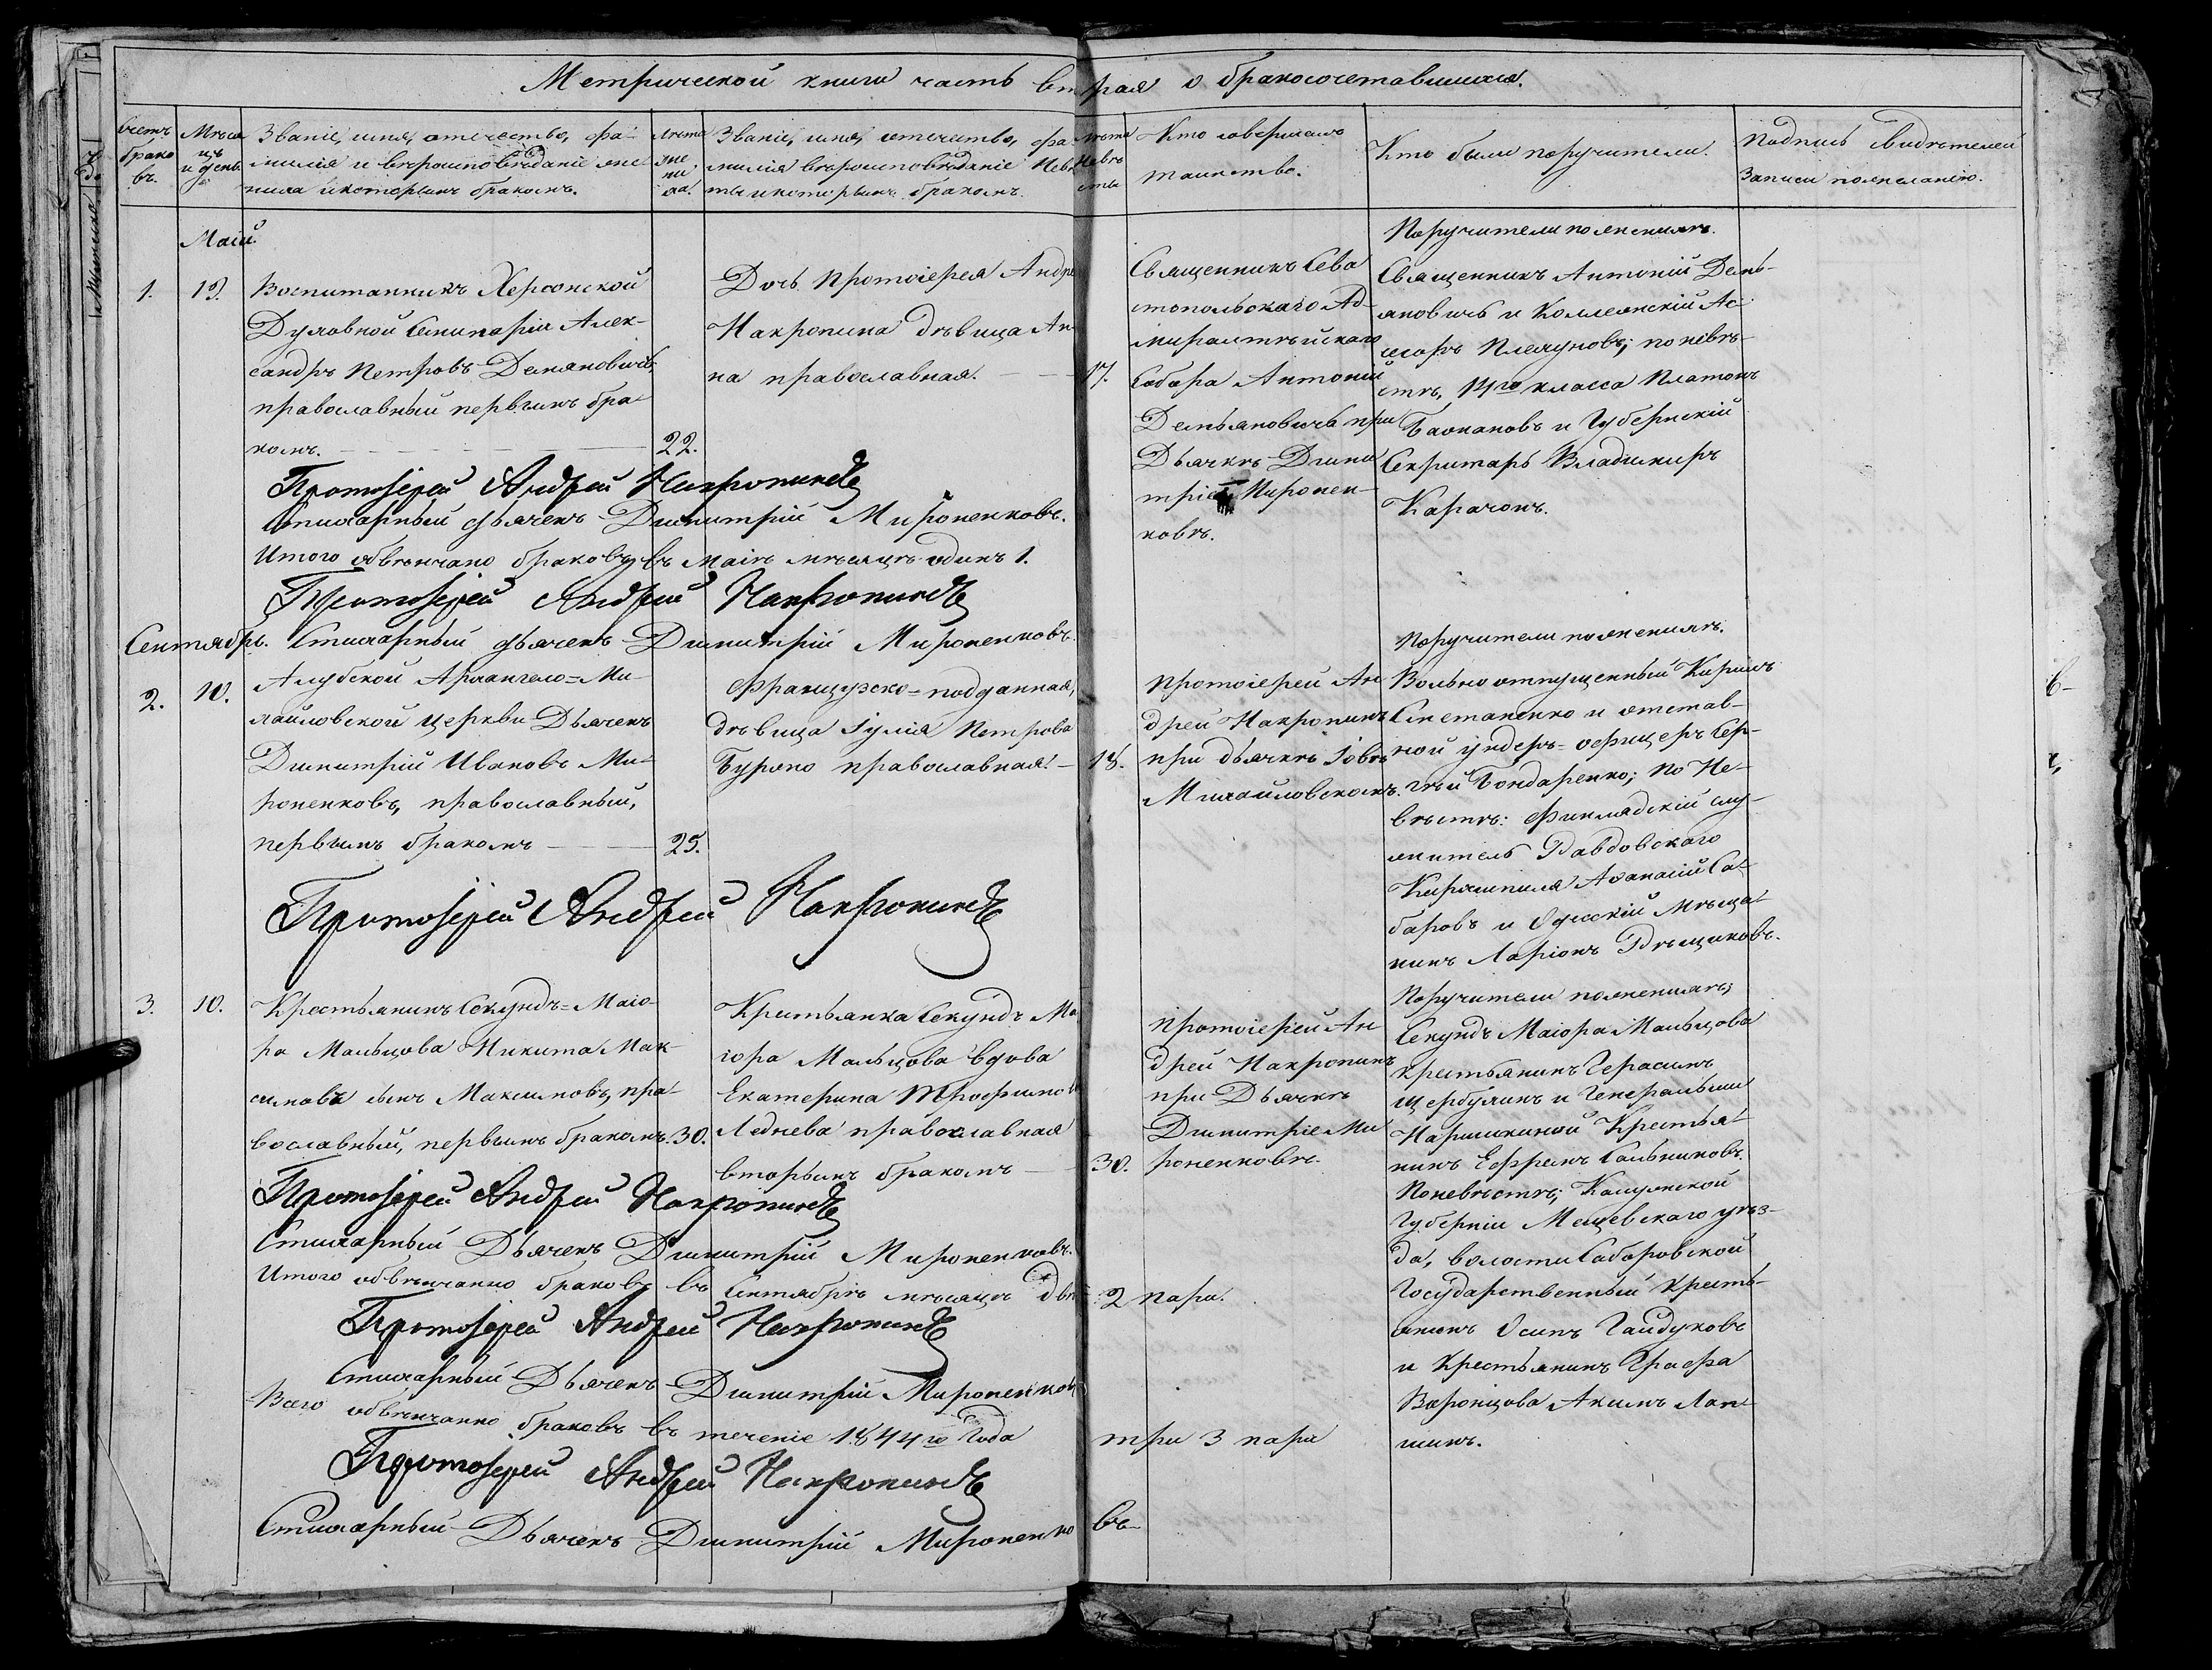 Метрической книги часть вторая о бракосочетавшихся.
Счетъ
брако
въ.
Мѣся
цъ
и день.
Званіе, имя, отечество, фа-
милія и вѣроисповѣданіе же-
ниха и которымъ бракомъ.
Лѣта
же
ни
ха.
Званіе, имя, отечество, фа-
милія вѣроисповѣданіе Невѣ
сты и которымъ бракомъ.
Лѣта
Невѣ
сты
Кто совершалъ
таинство.
Кто были поручители.
Подпись свидѣтелей
записи по желанію.
Маій.
1.
Воспитанникъ Херсонской
Духовной Семинаріи Алек-
сандръ Петровъ Демяновичъ,
православный первымъ бра
комъ.
22.
Дочь Протоіерея Андре
Накропина дѣвица Ан
на православная.
17.
Священникъ Сева
стопольскаго Ад-
миралтѣйскаго
Собора Антоній
Демьяновичъ при
Дьячкѣ Дими
тріѣ Миронен-
ковѣ.
Поручители по женихѣ.
Священникъ Антоній Демь-
яновичъ и Коллежскій Ас-
сесоръ Плехуновъ; по невѣ-
стѣ, 14го класса Платонъ
и Губернскій
Секритарь Владимиръ
Протоіерей Андрей Накропинъ
Стихарный дьячекъ Димитрій Мироненковъ.
Итого обвѣнчано браковъ въ маіѣ мѣсяцѣ одинъ 1.
Протоіерей Андрей Накропинъ
Стихарный дьячекъ Димитрій Мироненковъ.
Сентябрь.
2.
10.
Алубской Архангело=Ми-
хайловской церкви Дьячекъ
Димитрій Ивановъ Ми-
роненковъ, православный,
первымъ бракомъ
25.
Французско=подданная,
дѣвица Іулія Петрова
Буроно православная.
18.
Протоіерей Ан
дрей Накропинъ
при дьячкѣ Іовѣ
Михайловскомъ.
Поручители по женихѣ.
Вольноотпущенный Кирилъ
Степаненко и отстав-
ной ундеръ=офицеръ Сер-
гѣй Бондаренко; по Не-
вѣстѣ:
Афанасій Са-
баровъ и Одесскій Мѣща-
нинъ Ларіонъ
Протоіерей Андрей Накропинъ
3.
10.
Крестьянинъ Секундъ=Маіо-
ра Мальцова Никита Мак-
симовъ сынъ Максимовъ, пра-
вославный, первымъ бракомъ.
30.
Крестьянка Секундъ Ма
іора Мальцова вдова
Екатерина Трофимов
Леднева православная
вторымъ бракомъ
30.
Протоіерей Ан
дрей Накропинъ
при Дьячкѣ
Димитріе Ми
роненковѣ.
Поручители по женихѣ;
Секундъ Маіора Мальцова
крестьянинъ Герасимъ
и Генеральши
Нарышкиной Крестья-
нинъ Ефремъ Сальниковъ.
По невѣстѣ; Калужской
Губерніи Мещевскаго уѣз-
да, волости Сабаровской
Государственный Кресть-
янинъ Осипъ Гайдуковъ
и Крестьянинъ Графа
Воронцова Акимъ Лап
шинъ.
Протоіерей Андрей Накропинъ
Стихарный Дьячекъ Димитрій Мироненковъ.
Итого обвѣнчанно браковъ въ Сентябрѣ мѣсяцѣ двѣ 2 пары.
Протоіерей Андрей Накропинъ
Стихарный Дьячекъ Димитрій Мироненковъ
Всего обвѣнчанно браковъ въ теченіе 1844го года три 3 пары
Протоіерей Андрей Накропинъ
Стихарный Дьячекъ Димитрій Мироненко въ